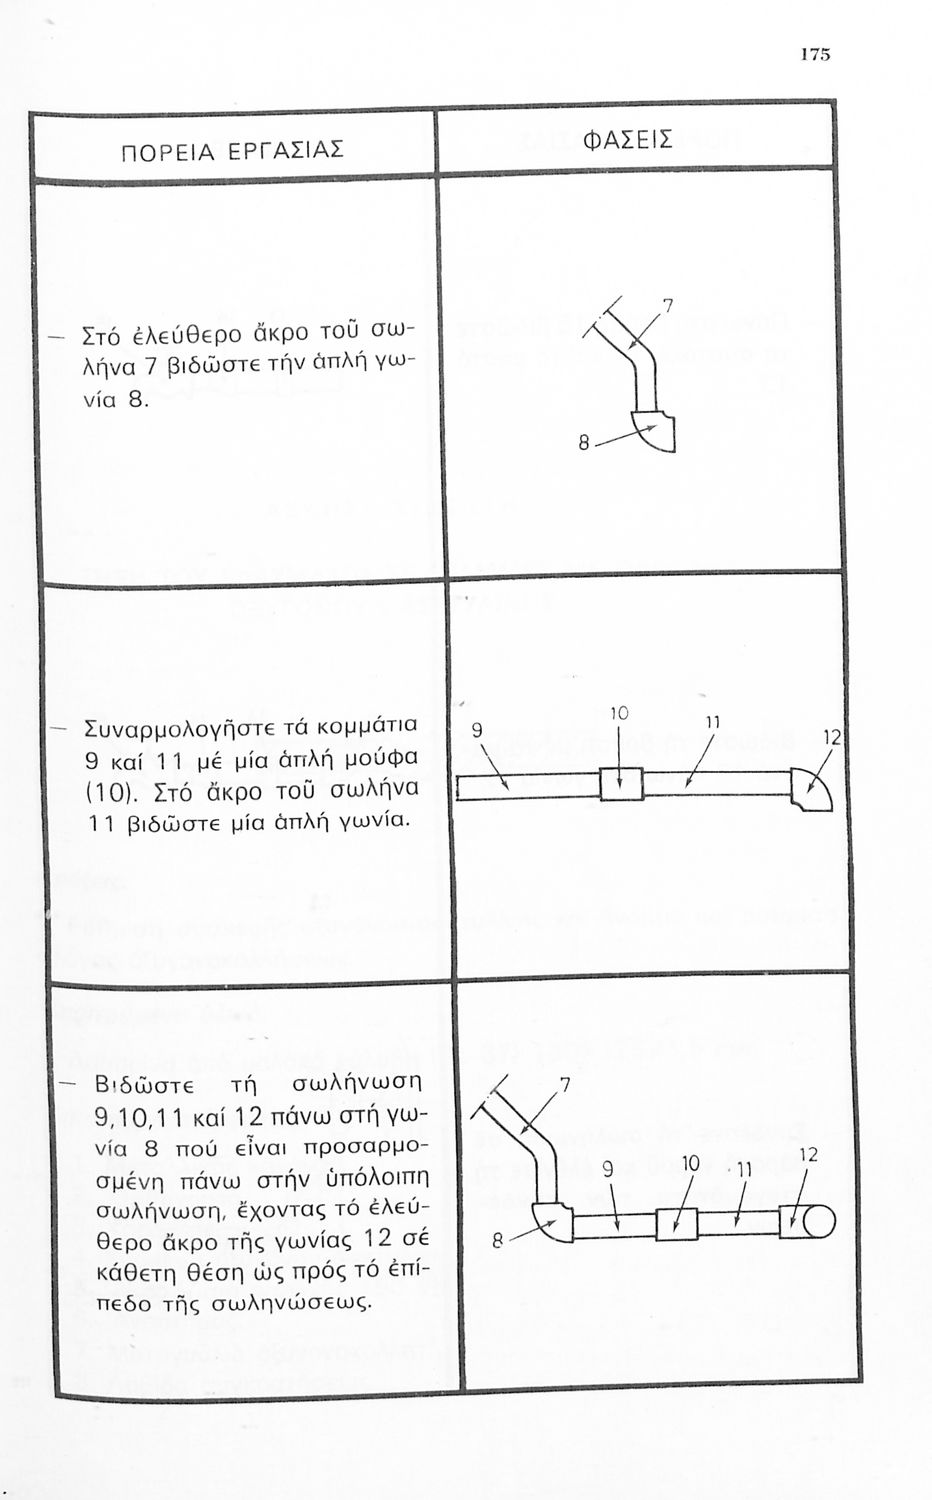 175
ΠΟΡΕΙΑ ΕΡΓΑΣΙΑΣ
ΦΑΣΕΙΣ
— Στό ἐλεύθερο ἄκρο τοῦ σω-
λήνα 7 βιδῶστε τήν ἁπλή γω-
νία 8.
7
8
— Συναρμολογῆστε τά κομμάτια
9 καί 11 μέ μία ἁπλή μούφα
(10). Στό ἄκρο τοῦ σωλήνα
11 βιδῶστε μία ἁπλή γωνία.
9 10 11 12
— Βιδῶστε τή σωλήνωση
9,10,11 καί 12 πάνω στή γω-
νία 8 πού εἶναι προσαρμο-
σμένη πάνω στήν ὑπόλοιπη
σωλήνωση, ἔχοντας τό ἐλεύ-
θερο ἄκρο τῆς γωνίας 12 σέ
κάθετη θέση ὡς πρός τό ἐπί-
πεδο τῆς σωληνώσεως.
7
9 10 11 12
8